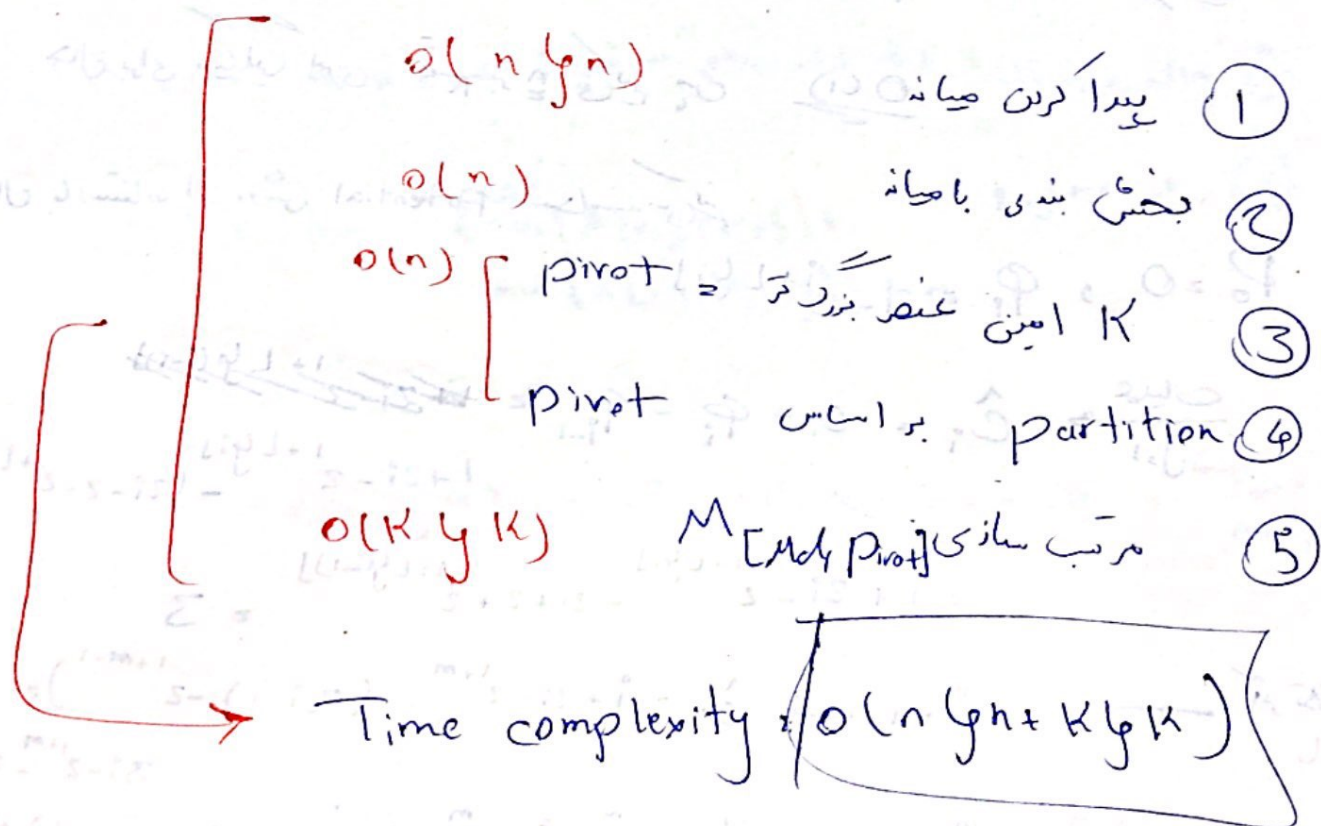 ① پیدا کردن میانه O(n lg n)
② بخش بندی با میانه O(n)
③ K امین عنصر بزرگ تر = pivot O(n)
④ partition بر اساس pivot
⑤ مرتب سازی M[Md, Pivot] O(K lg K)
Time complexity: O(n lg n + K lg K)